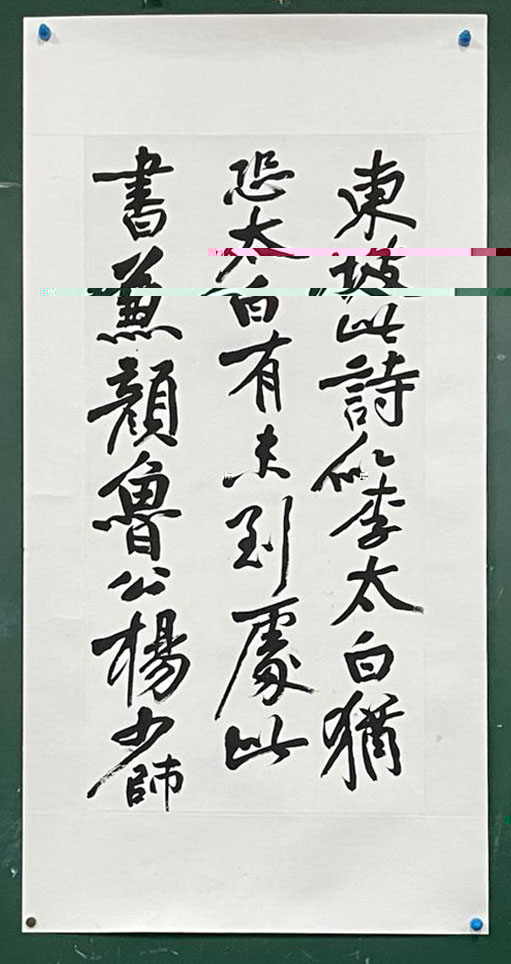 東坡此詩似李太白猶
恐太白有未到處此
書兼顏魯公楊少師